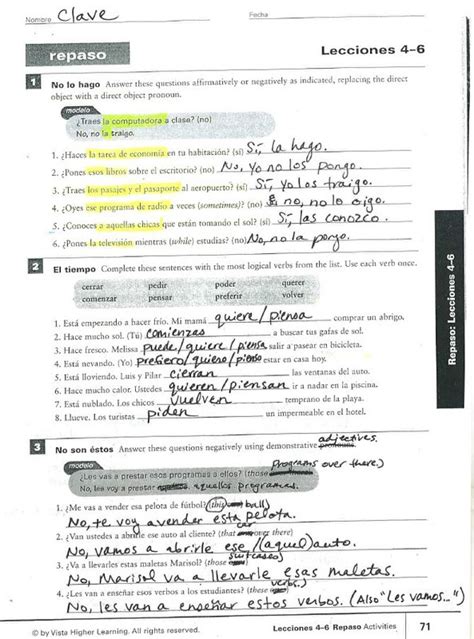 Nombre Clave Fecha
repaso Lecciones 4-6
1 No lo hago Answer these questions affirmatively or negatively as indicated, replacing the direct
object with a direct object pronoun.
modelo
¿Traes la computadora a clase? (no)
No, no la traigo.
1. ¿Haces la tarea de economía en tu habitación? (sí) Sí, la hago.
2. ¿Pones esos libros sobre el escritorio? (no) No, Yo no los pongo.
3. ¿Traes los pasajes y el pasaporte al aeropuerto? (sí) Sí, Yo los traigo.
4. ¿Oyes ese programa de radio a veces (sometimes)? (no) no, no lo oigo.
5. ¿Conoces a aquellas chicas que están tomando el sol? (sí) Sí, las conozco.
6. ¿Pones la televisión mientras (while) estudias? (no) No, no la pongo.
2 El tiempo Complete these sentences with the most logical verbs from the list. Use each verb once.
cerrar pedir poder querer
comenzar pensar preferir volver
1. Está empezando a hacer frío. Mi mamá quiere / piensa comprar un abrigo.
2. Hace mucho sol. (Tú) comienzas a buscar tus gafas de sol.
3. Hace fresco. Melissa puede/quiere/piensa salir a pasear en bicicleta.
4. Está nevando. (Yo) prefiero/quiero/pienso estar en casa hoy.
5. Está lloviendo. Luis y Pilar cierran las ventanas del auto.
6. Hace mucho calor. Ustedes quieren / piensan ir a nadar en la piscina.
7. Está nublado. Los chicos vuelven temprano de la playa.
8. Llueve. Los turistas piden un impermeable en el hotel.
3 No son éstos Answer these questions negatively using demonstrative pronouns. adjectives.
modelo
¿Les vas a prestar esos programas a ellos? (those programs over there.)
No, les voy a prestar aquellos programas.
1. ¿Me vas a vender esa pelota de fútbol? (this ball)
No, te voy a vender esta pelota.
2. ¿Van ustedes a abrirle ese auto al cliente? (that car over there)
No, vamos a abrirle ese/(aquel) auto.
3. ¿Va a llevarles estas maletas Marisol? (those suitcases)
No, Marisol va a llevarle esas maletas.
4. ¿Les van a enseñar esos verbos a los estudiantes? (these verbs.)
No, les van a enseñar estos verbos. (Also "Les vamos..")
Repaso: Lecciones 4-6
© by Vista Higher Learning. All rights reserved. Lecciones 4-6 Repaso Activities 71